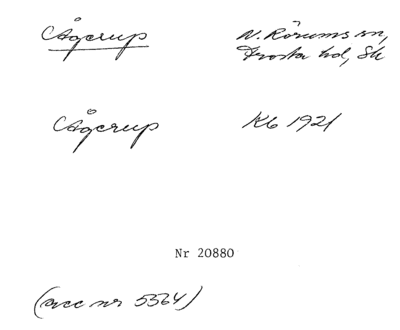 Ågerup N. Rörums sn,
Frosta hd, Sk
Ågerup Kb 1921
Nr 20880
(acc nr 5564)